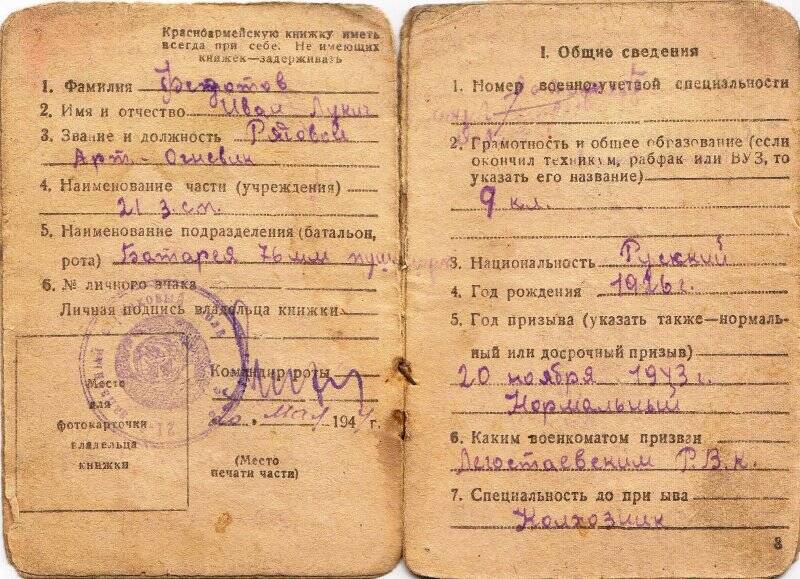 Красноармейскую книжку иметь
всегда при себе. Не имеющих
книжек—задерживать
1. Фамилия Федотов
2. Имя и отчество Иван Лукич
3. Звание и должность Рядовой
Арт-Огневик
4. Наименование части (учреждения)
21 з.сп.
5. Наименование подразделения (батальон,
рота) Батарея 76 мм пушек
6. № личного знака
Личная подпись владельца книжки
Командир роты
мая 1944 г.
Место
для
фотокарточки
владельца
книжки
(Место
печати части)
I. Общие сведения
1. Номер военно-учетной специальности
2. Грамотность и общее образование (если
окончил техникум, рабфак или ВУЗ, то
указать его название)
9 кл.
3. Национальность Руский
4. Год рождения 1926 г.
5. Год призыва (указать также—нормаль-
ный или досрочный призыв)
20 ноября 1943 г.
Нормальный
6. Каким военкоматом призван
Легостаевским Р.В.к.
7. Специальность до при ыва
Колхозник
3